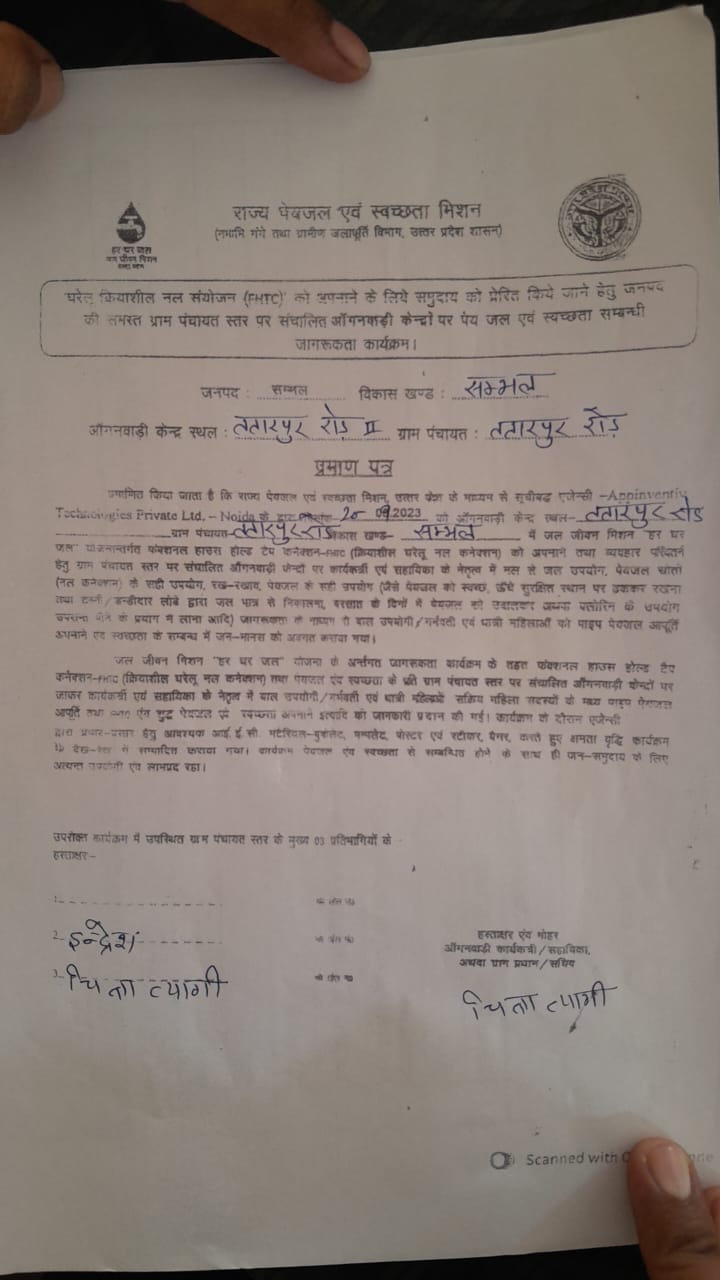 राज्य पेयजल एवं स्वच्छता मिशन
(नमामि गंगे तथा ग्रामीण जलापूर्ति विभाग, उत्तर प्रदेश शासन)
हर घर जल
जल जीवन मिशन
'घरेलू क्रियाशील नल संयोजन (FHTC)' को अपनाने के लिये समुदाय को प्रेरित किये जाने हेतु जनपद
की समस्त ग्राम पंचायत स्तर पर संचालित ऑगनवाड़ी केन्द्रों पर पेय जल एवं स्वच्छता सम्बन्धी
जागरूकता कार्यक्रम।
जनपद : सम्भल विकास खण्ड : सम्भल
ऑगनवाड़ी केन्द्र स्थल : ततारपुर रोड़ II ग्राम पंचायत : ततारपुर रोड़
प्रमाण पत्र
प्रमाणित किया जाता है कि राज्य पेयजल एवं स्वच्छता मिशन, उत्तर प्रदेश के माध्यम से सूचीबद्ध एजेन्सी –Appinventiv
Technologies Private Ltd. – Noida के द्वारा दिनांक 20 09 2023 को ऑगनवाड़ी केन्द्र स्थल– ततारपुर रोड
ग्राम पंचायत– ततारपुर रोड विकास खण्ड– सम्भल में जल जीवन मिशन "हर घर
जल" योजनान्तर्गत फंक्शनल हाउस होल्ड टैप कनेक्शन–FHTC (क्रियाशील घरेलू नल कनेक्शन) को अपनाने तथा व्यवहार परिवर्तन
हेतु ग्राम पंचायत स्तर पर संचालित ऑगनवाड़ी केन्द्रों पर कार्यकर्त्री एवं सहायिका के नेतृत्व में नल से जल उपयोग, पेयजल स्रोतो
(नल कनेक्शन) के सही उपयोग, रख–रखाव, पेयजल के सही उपयोग (जैसे पेयजल को स्वच्छ, ऊँचे सुरक्षित स्थान पर ढककर रखना
तथा टंकी / डन्डीदार लोटे द्वारा जल पात्र से निकालना, बरसात के दिनों में पेयजल को उबालकर अथवा क्लोरिन के उपयोग
उपरान्त पीने के प्रयोग में लाना आदि) जागरूकता के माध्यम से बाल उपयोगी/गर्भवती एवं धात्री महिलाओं को पाइप पेयजल आपूर्ति
अपनाने एवं स्वच्छता के सम्बन्ध में जन–मानस को अवगत कराया गया।
जल जीवन मिशन "हर घर जल" योजना के अर्न्तगत जागरूकता कार्यक्रम के तहत फंक्शनल हाउस होल्ड टैप
कनेक्शन–FHTC (क्रियाशील घरेलू नल कनेक्शन) तथा पेयजल एवं स्वच्छता के प्रति ग्राम पंचायत स्तर पर संचालित ऑगनवाड़ी केन्द्रों पर
जाकर कार्यकर्त्री एवं सहायिका के नेतृत्व में बाल उपयोगी/गर्भवती एवं धात्री महिलायें सक्रिय महिला सदस्यों के मध्य पाइप पेयजल
आपूर्ति तथा स्वच्छ एंव शुद्ध पेयजल एवं स्वच्छता अपनाने इत्यादि की जानकारी प्रदान की गई। कार्यक्रम के दौरान एजेन्सी
द्वारा प्रचार–प्रसार हेतु आवश्यक आई.ई.सी. मटेरियल–बुकलेट, पम्पलेट, पोस्टर एवं स्टीकर, बैनर, करते हुए क्षमता वृद्धि कार्यक्रम
देख–रेख में सम्पादित कराया गया। कार्यक्रम पेयजल एंव स्वच्छता से सम्बन्धित होने के साथ ही जन–समुदाय के लिए
अत्यन्त उपयोगी एंव लाभप्रद रहा।
उपरोक्त कार्यक्रम में उपस्थित ग्राम पंचायत स्तर के मुख्य 03 प्रतिभागियों के
हस्ताक्षर–
1.
2. इन्द्रेश
3. चित्रा त्यागी
हस्ताक्षर एंव मोहर
ऑगनवाड़ी कार्यकत्री/सहायिका,
अथवा ग्राम प्रधान/सचिव
चित्रा त्यागी
Scanned with